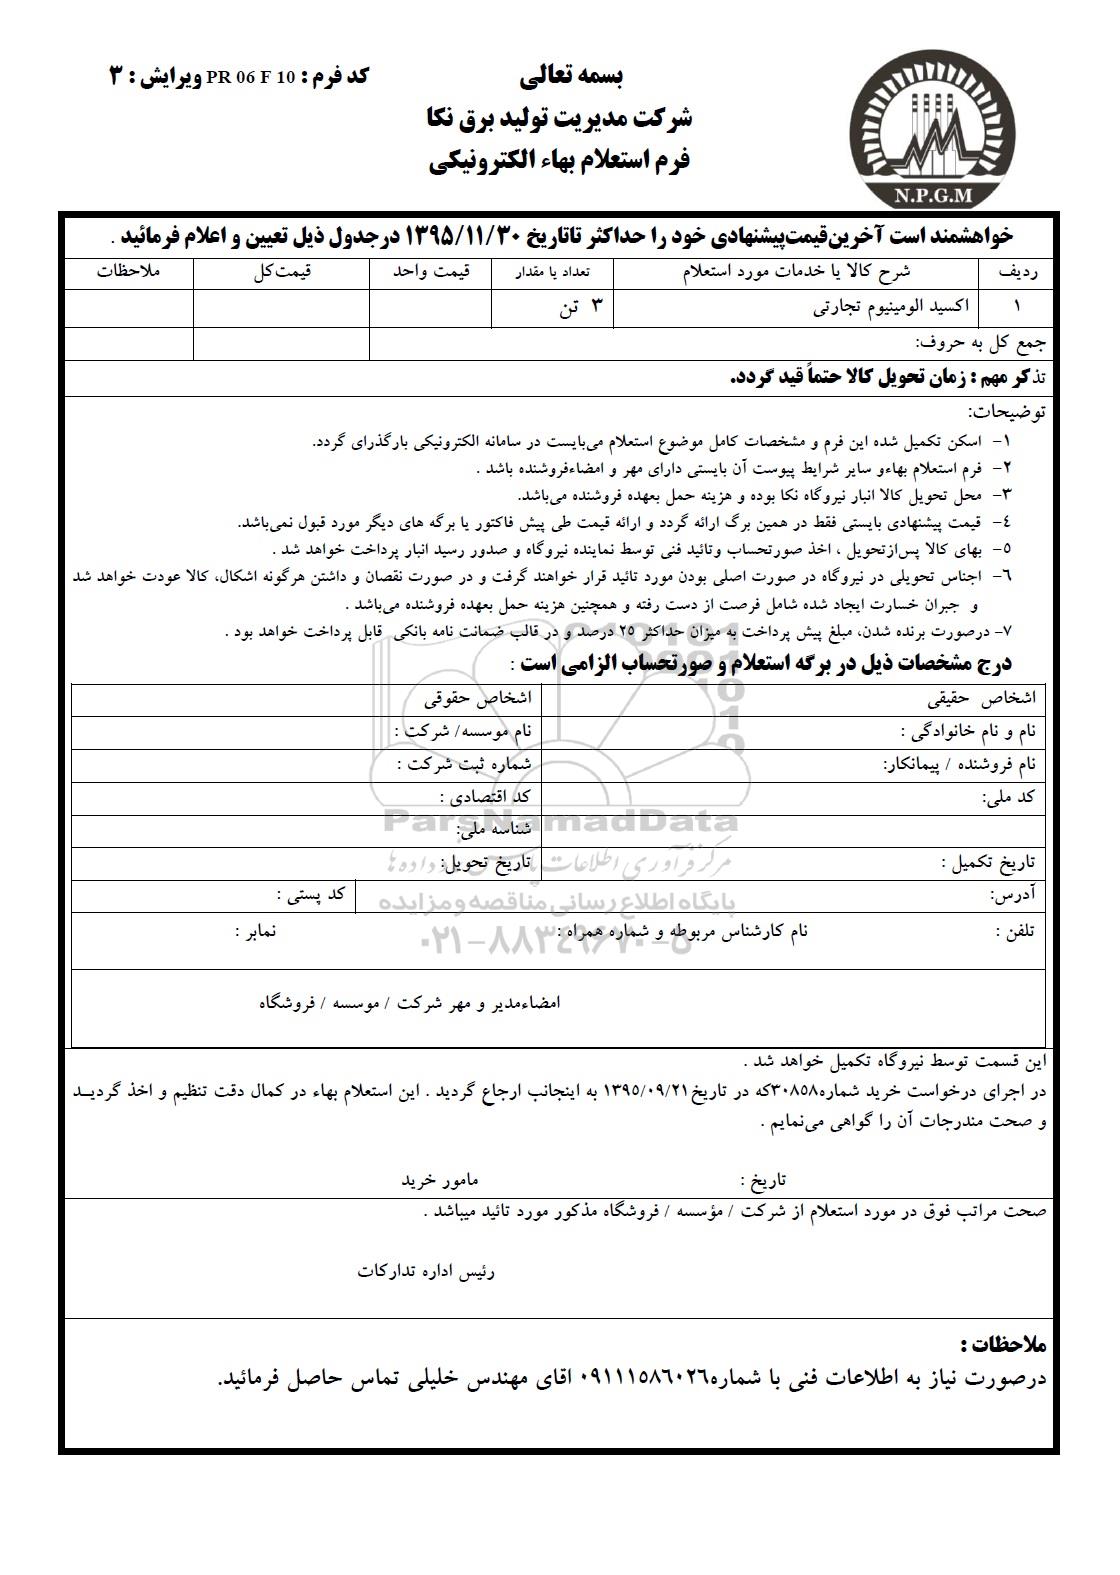 بسمه تعالی
شرکت مدیریت تولید برق نکا
فرم استعلام بهاء الکترونیکی
کد فرم : PR 06 F 10 ویرایش : ۳
N.P.G.M
خواهشمند است آخرین‌قیمت‌پیشنهادی خود را حداکثر تاتاریخ ۱۳۹۵/۱۱/۳۰ درجدول ذیل تعیین و اعلام فرمائید .
ردیف شرح کالا یا خدمات مورد استعلام تعداد یا مقدار قیمت واحد قیمت‌کل ملاحظات
۱ اکسید الومینیوم تجارتی ۳ تن
جمع کل به حروف:
تذکر مهم : زمان تحویل کالا حتماً قید گردد.
توضیحات:
۱- اسکن تکمیل شده این فرم و مشخصات کامل موضوع استعلام می‌بایست در سامانه الکترونیکی بارگذرای گردد.
۲- فرم استعلام بهاءو سایر شرایط پیوست آن بایستی دارای مهر و امضاءفروشنده باشد .
۳- محل تحویل کالا انبار نیروگاه نکا بوده و هزینه حمل بعهده فروشنده می‌باشد.
۴- قیمت پیشنهادی بایستی فقط در همین برگ ارائه گردد و ارائه قیمت طی پیش فاکتور یا برگه های دیگر مورد قبول نمی‌باشد.
۵- بهای کالا پس‌ازتحویل ، اخذ صورتحساب وتائید فنی توسط نماینده نیروگاه و صدور رسید انبار پرداخت خواهد شد .
۶- اجناس تحویلی در نیروگاه در صورت اصلی بودن مورد تائید قرار خواهند گرفت و در صورت نقصان و داشتن هرگونه اشکال، کالا عودت خواهد شد
و جبران خسارت ایجاد شده شامل فرصت از دست رفته و همچنین هزینه حمل بعهده فروشنده می‌باشد .
۷- درصورت برنده شدن، مبلغ پیش پرداخت به میزان حداکثر ۲۵ درصد و در قالب ضمانت نامه بانکی قابل پرداخت خواهد بود .
درج مشخصات ذیل در برگه استعلام و صورتحساب الزامی است :
اشخاص حقیقی اشخاص حقوقی
نام و نام خانوادگی : نام موسسه/ شرکت :
نام فروشنده / پیمانکار: شماره ثبت شرکت :
کد ملی: کد اقتصادی :
ParsNamadData
شناسه ملی:
تاریخ تکمیل : تاریخ تحویل:
آدرس: کد پستی :
پایگاه اطلاع رسانی مناقصه و مزایده
تلفن : نام کارشناس مربوطه و شماره همراه : نمابر :
۰۲۱-۸۸۳۴۹۶۷۰-۵
امضاءمدیر و مهر شرکت / موسسه / فروشگاه
این قسمت توسط نیروگاه تکمیل خواهد شد .
در اجرای درخواست خرید شماره۳۰۸۵۸که در تاریخ۱۳۹۵/۰۹/۲۱ به اینجانب ارجاع گردید . این استعلام بهاء در کمال دقت تنظیم و اخذ گردیــد
و صحت مندرجات آن را گواهی می‌نمایم .
تاریخ : مامور خرید
صحت مراتب فوق در مورد استعلام از شرکت / مؤسسه / فروشگاه مذکور مورد تائید میباشد .
رئیس اداره تدارکات
ملاحظات :
درصورت نیاز به اطلاعات فنی با شماره۰۹۱۱۱۵۸۶۰۲۶ اقای مهندس خلیلی تماس حاصل فرمائید.